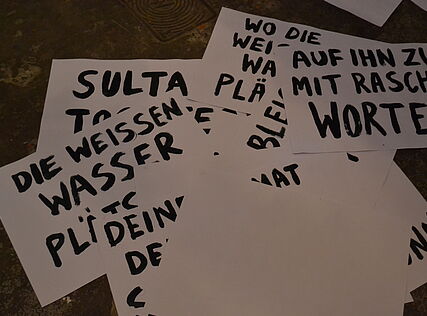 SULTA
WO DIE
WEI-
WA
PLÄ
AUF IHN ZU
MIT RASCH
WORTE
DIE WEISSEN
WASSER
PL
BLEI
MAT
DEINE
DE